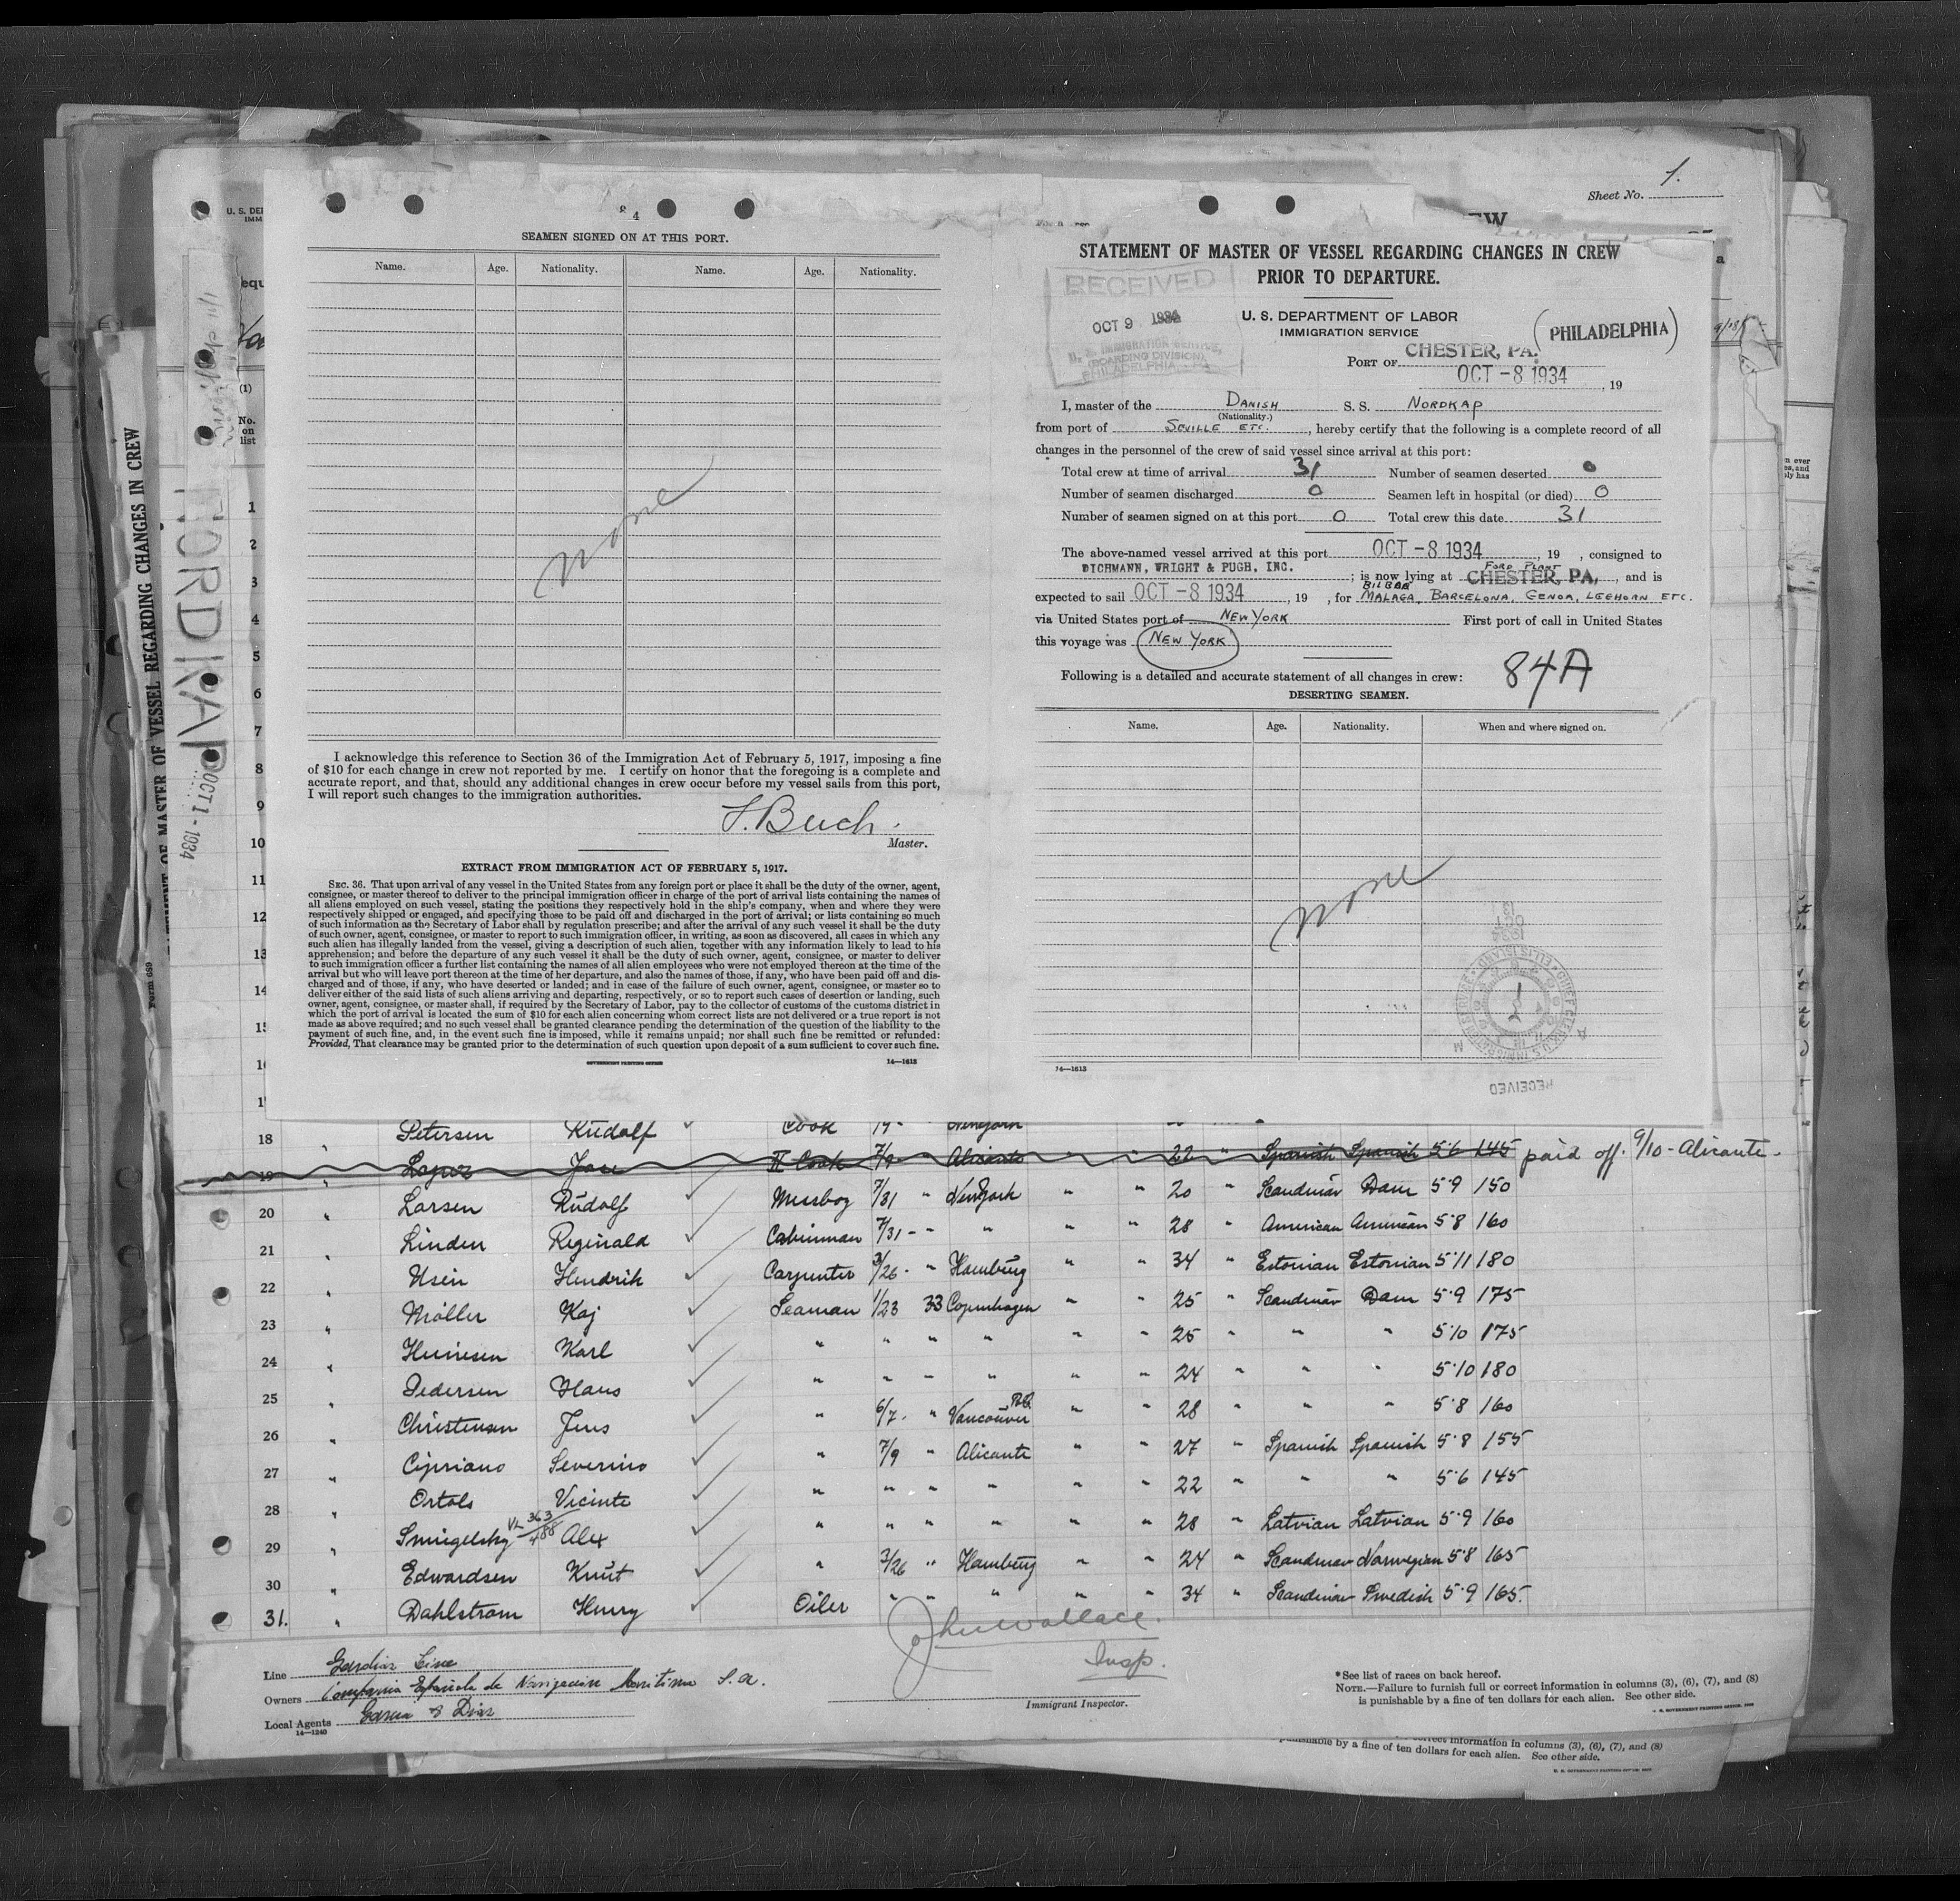 Sheet No. 1.
U. S. DE
IMM
EW
8 4
SEAMEN SIGNED ON AT THIS PORT.
Name. Age. Nationality. Name. Age. Nationality.
none
I acknowledge this reference to Section 36 of the Immigration Act of February 5, 1917, imposing a fine
of $10 for each change in crew not reported by me. I certify on honor that the foregoing is a complete and
accurate report, and that, should any additional changes in crew occur before my vessel sails from this port,
I will report such changes to the immigration authorities.
Master.
EXTRACT FROM IMMIGRATION ACT OF FEBRUARY 5, 1917.
SEC. 36. That upon arrival of any vessel in the United States from any foreign port or place it shall be the duty of the owner, agent,
consignee, or master thereof to deliver to the principal immigration officer in charge of the port of arrival lists containing the names of
all aliens employed on such vessel, stating the positions they respectively hold in the ship's company, when and where they were
respectively shipped or engaged, and specifying those to be paid off and discharged in the port of arrival; or lists containing so much
of such information as the Secretary of Labor shall by regulation prescribe; and after the arrival of any such vessel it shall be the duty
of such owner, agent, consignee, or master to report to such immigration officer, in writing, as soon as discovered, all cases in which any
such alien has illegally landed from the vessel, giving a description of such alien, together with any information likely to lead to his
apprehension; and before the departure of any such vessel it shall be the duty of such owner, agent, consignee, or master to deliver
to such immigration officer a further list containing the names of all alien employees who were not employed thereon at the time of the
arrival but who will leave port thereon at the time of her departure, and also the names of those, if any, who have been paid off and dis-
charged and of those, if any, who have deserted or landed; and in case of the failure of such owner, agent, consignee, or master so to
deliver either of the said lists of such aliens arriving and departing, respectively, or so to report such cases of desertion or landing, such
owner, agent, consignee, or master shall, if required by the Secretary of Labor, pay to the collector of customs of the customs district in
which the port of arrival is located the sum of $10 for each alien concerning whom correct lists are not delivered or a true report is not
made as above required; and no such vessel shall be granted clearance pending the determination of the question of the liability to the
payment of such fine, and, in the event such fine is imposed, while it remains unpaid; nor shall such fine be remitted or refunded:
Provided, That clearance may be granted prior to the determination of such question upon deposit of a sum sufficient to cover such fine.
GOVERNMENT PRINTING OFFICE 14—1613
STATEMENT OF MASTER OF VESSEL REGARDING CHANGES IN CREW
PRIOR TO DEPARTURE.
RECEIVED
OCT 9 1934
U. S. IMMIGRATION SERVICE,
BOARDING DIVISION,
PHILADELPHIA, PA.
U. S. DEPARTMENT OF LABOR
IMMIGRATION SERVICE
(PHILADELPHIA)
PORT OF CHESTER, PA.
OCT -8 1934, 19
I, master of the DANISH S. S. NORDKAP
(Nationality.)
from port of SEVILLE ETC., hereby certify that the following is a complete record of all
changes in the personnel of the crew of said vessel since arrival at this port:
Total crew at time of arrival 31 Number of seamen deserted 0
Number of seamen discharged 0 Seamen left in hospital (or died) 0
Number of seamen signed on at this port 0 Total crew this date 31
The above-named vessel arrived at this port OCT -8 1934, 19 , consigned to
DICHMANN, WRIGHT & PUGH, INC. ; is now lying at FORD PLANT CHESTER, PA., and is
expected to sail OCT -8 1934, 19 , for BILBAO MALAGA, BARCELONA, GENOA, LEGHORN ETC.
via United States port of NEW YORK First port of call in United States
this voyage was NEW YORK
84A
Following is a detailed and accurate statement of all changes in crew:
DESERTING SEAMEN.
Name. Age. Nationality. When and where signed on.
none
RECEIVED
14—1613
STATEMENT OF MASTER OF VESSEL REGARDING CHANGES IN CREW
Form 689
NORDKAP
OCT 1 - 1934
equ
(1)
No.
on
list
1
2
3
4
5
6
7
8
9
10
11
12
13
14
18 " Petersen Rudolf Cook
19 " Lopez Jose II Cook 7/9 Alicante " " 22 " Spanish Spanish 5'6 145 paid off. 9/10 - Alicante -
20 " Larsen Rudolf Messboy 7/31 " New York " " 20 " Scandinav Dane 5'9 150
21 " Linden Reginald Cabinman 7/31 - " " " " 28 " American American 5'8 160
22 " Usin Hendrik Carpenter 3/26 - " Hamburg " " 34 " Estonian Estonian 5'11 180
23 " Möller Kaj Seaman 1/23 33 Copenhagen " " 25 " Scandinav Dane 5'9 175
24 " Heinesen Karl " " " " " " 25 " " " 5'10 175
25 " Pedersen Hans " " " " " " 24 " " " 5'10 180
26 " Christensen Jens " 6/7 - " Vancouver " " 28 " " " 5'8 160
27 " Cipriano Severino " 7/9 " Alicante " " 27 " Spanish Spanish 5'8 155
28 " Ortols Vicinte " " " " " " 22 " " " 5'6 145
29 " Smiegelsky Alex " " " " " " 28 " Latvian Latvian 5'9 160
30 " Edwardsen Knut " 3/26 " Hamburg " " 24 " Scandinav Norwegian 5'8 165
31. " Dahlstrom Henry Oiler " " " " " 34 " Scandinav Swedish 5'9 165.
John Wallace
Insp.
Immigrant Inspector.
Line Gardiaz Line
Owners Compania Española de Navigación Maritima S.A.
Local Agents Garcia & Diaz
14—1240
*See list of races on back hereof.
NOTE.—Failure to furnish full or correct information in columns (3), (6), (7), and (8)
is punishable by a fine of ten dollars for each alien. See other side.
U. S. GOVERNMENT PRINTING OFFICE
punishable by a fine of ten dollars for each alien. See other side.